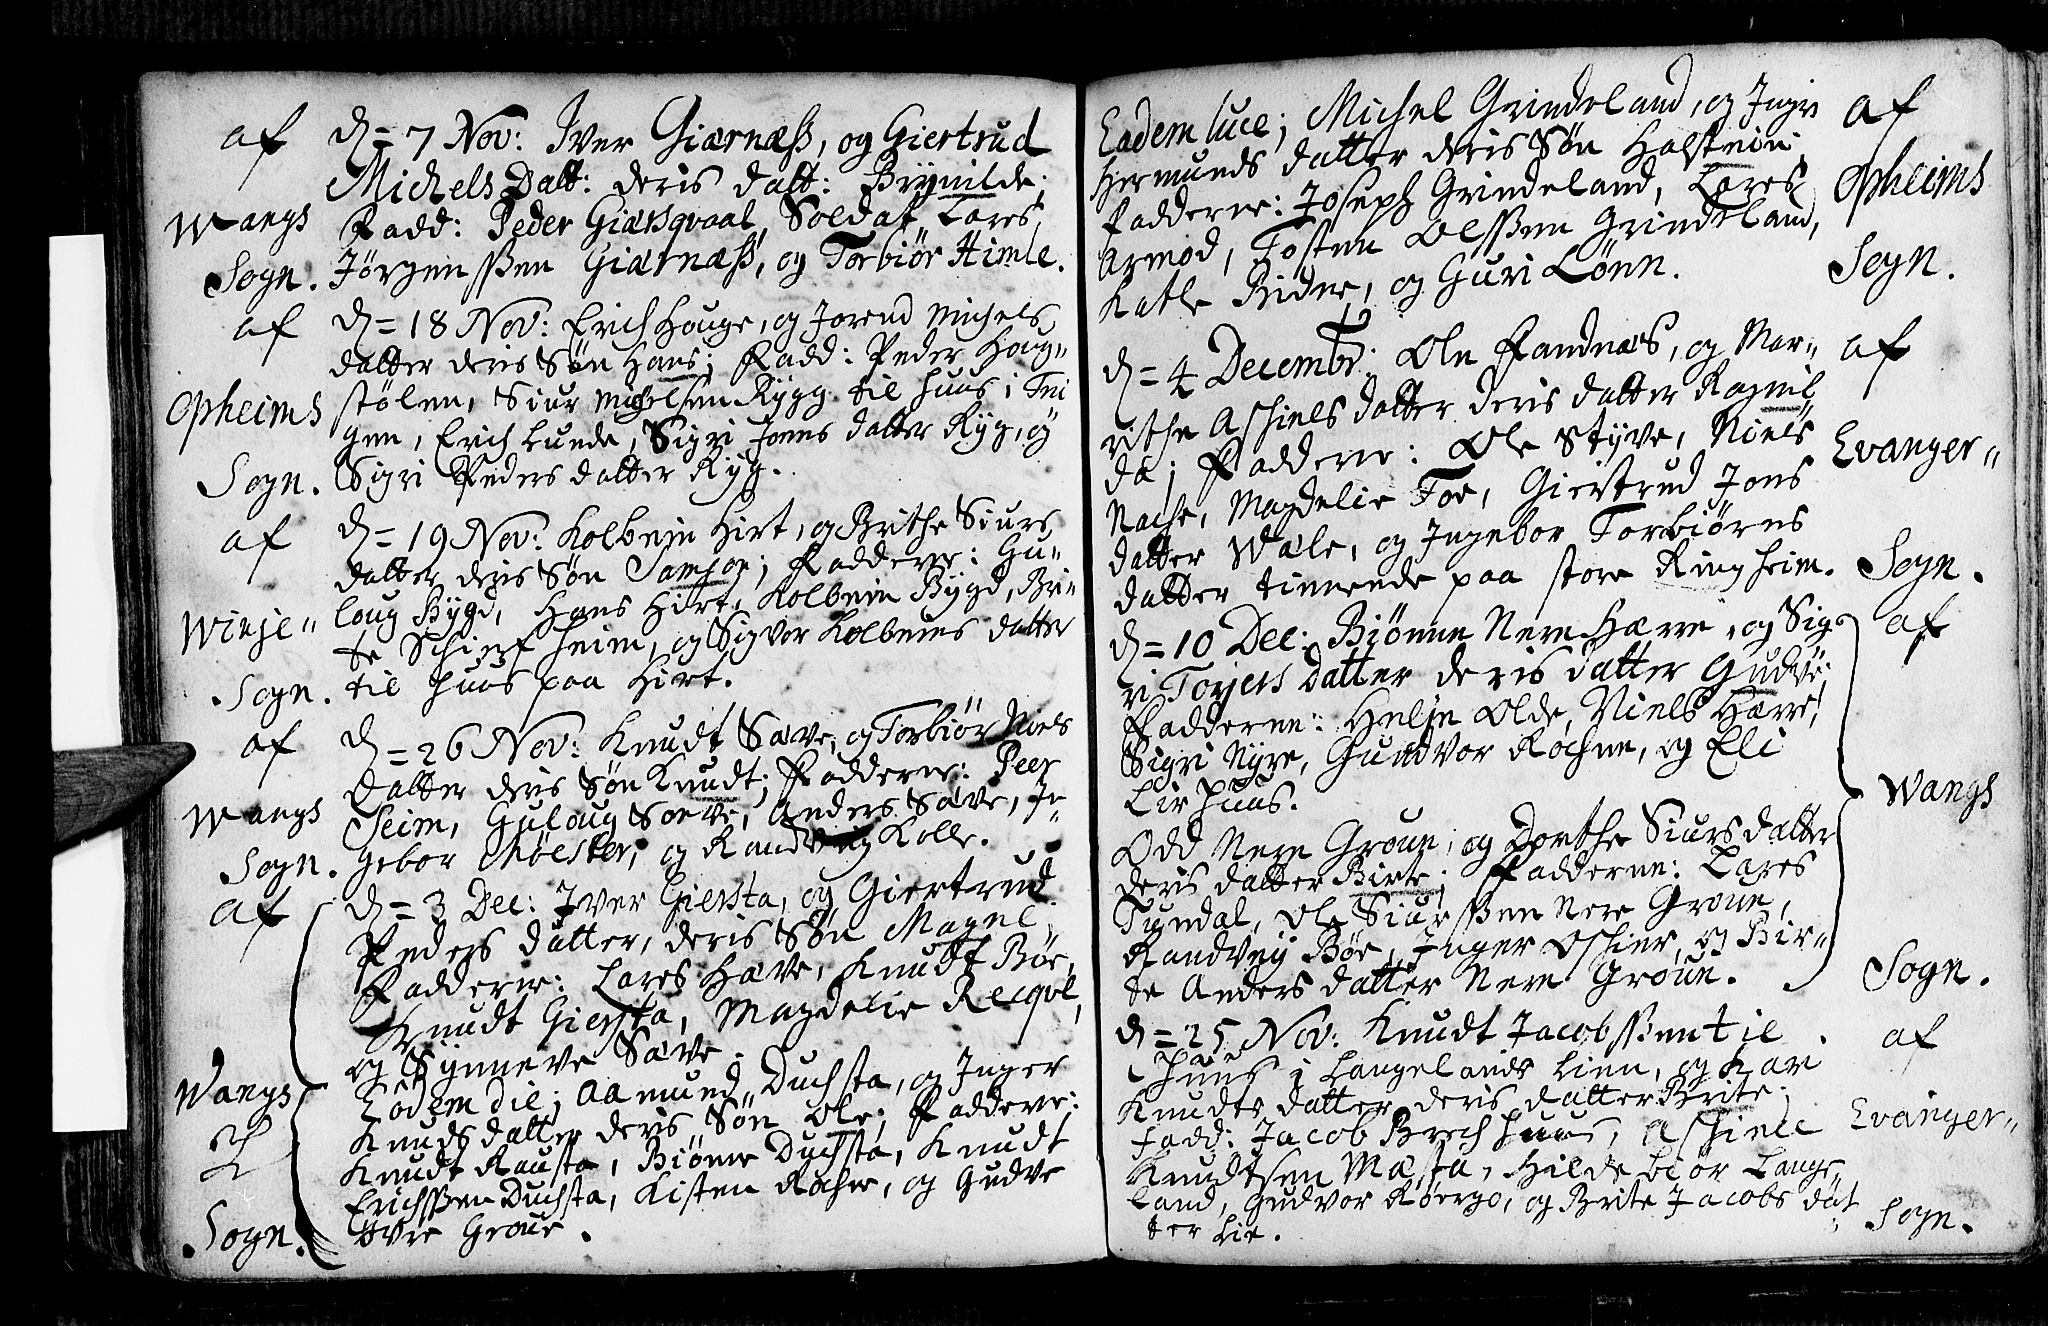 af
Wangs
Sogn.
af
Opheims
Sogn.
af
Winje=
Sogn.
af
Wangs
Sogn.
af
Wangs
Sogn.
D = 7 Nov: Iver Giærnæß, og Giertrud
Michels Datt: deris datt: Brynilde;
Fadd: Peder Giæsqvaal, Soldat Lares
Jørgenssen Giærnæß, og Torbiør Himle.
D = 18 Nov: Erich Houge, og Jorend Michels
datter deris Søn Hans; Fadd: Peder Houg=
stølen, Siur Michelsen Rygg til huus i
gen, Erich Lunde, Sigri Jones datter Ryg, og
Sigri Peders datter Ryg.
D = 19 Nov: Kolbein Hirt, og Brithe Siurs
datter deris Søn Samson; Fadderne: Gu=
loug Bygd, Hans Hirt, Kolbein Bygd, Bri=
te Schierfheim, og Sigvor Kolbeins datter
til huus paa Hirt.
D = 26 Nov: Knudt Sæve, og Torbiør Niels
datter deris Søn Knudt; Fadderne: Peer
Seim, Guloug Sæve, Anders Sæve, In=
gebor Mølster, og Randveig Kolle.
D = 3 Dec: Iver Giersta, og Giertrud
Peders datter, deris Søn Magne,
Fadderne: Lares Hæve, Knudt Bøe,
Knudt Giersta, Magdelie Recqve,
og Synneve Sæve.
Eodem die; Aamund Duchsta, og Inger
Knuds datter deris Søn Ole; Fadderne:
Knudt Rausta, Biørne Duchsta, Knudt
Erichssen Duchsta, Kisten Rochne, og Gudve
øvre Groue.
Eadem luce; Michel Grindeland, og Ingri
Hermunds datter deris Søn Halstein
Fadderne: Joseph Grindeland, Lares
Armod, Tosten Olssen Grindeland,
Katle Bidne, og Guri Lønn.
D = 4 Decembr: Ole Fandnæs, og Mar=
rithe Aschiels datter deris datter Ragnil=
da; Fadderne: Ole Styve, Niels
Nache, Magdelie Toe, Giertrud Jons
datter Wæle, og Ingebor Torbiørns
datter tienende paa store Ringheim.
D = 10 Dec: Biønne Nere Hærre, og Sig=
ri Torjers Datter deris datter Gudve.
Fadderne: Helje Olde, Niels Hærre,
Sigri Nyre, Gundvor Rochne, og Eli
Lirhuus.
Odd Nere Groue, og Dorthe Siurs datter
deris datter Birte; Fadderne: Lares
Tundal, Ole Siurssen Nere Groue,
Randveig Bøe, Inger Oschier, og Bir=
te Anders datter Nere Groue.
D = 25 Nov: Knudt Jacobssen til
huus i Langelands Lien, og Kari
Knudts datter deris datter Brite;
Fadd: Jacob Brechhuus, Aschiel
Knudtsen Mæsta, Hildebiør Lange
land, Gudvor Rørgo, og Brite Jacobs dat
ter Lie.
af
Opheims
Sogn.
af
Evanger=
Sogn.
af
Wangs
Sogn.
af
Evanger=
Sogn.